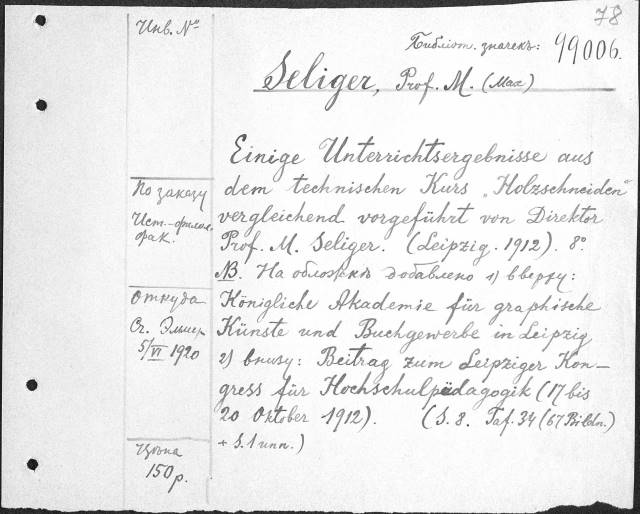 78
Инв. №
Библиот. значекъ: 99006.
Seliger, Prof. M. (Max)
Einige Unterrichtsergebnisse aus
dem technischen Kurs „Holzschneiden"
vergleichend vorgeführt von Direktor
Prof. M. Seliger. (Leipzig. 1912). 8°.
NB. На обложкѣ добавлено 1) вверху:
Königliche Akademie für graphische
Künste und Buchgewerbe in Leipzig
2) внизу: Beitrag zum Leipziger Kon-
gress für Hochschulpädagogik (17 bis
20 Oktober 1912). (S. 8. Taf. 34 (67 Bildn.)
+ S. 1 unn.)
По заказу
Ист.-филол.
фак.
Откуда
5/VI 1920
Цѣна
150 р.